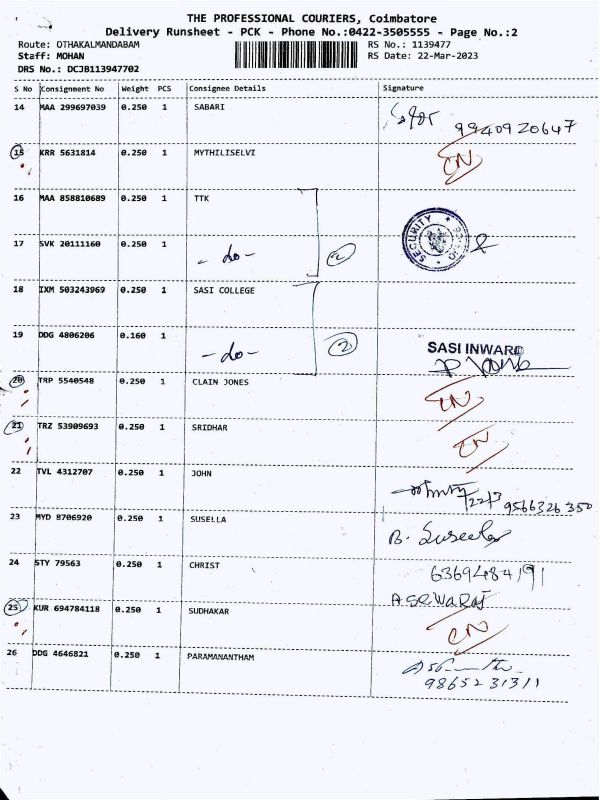 THE PROFESSIONAL COURIERS, Coimbatore
Delivery Runsheet - PCK - Phone No.:0422-3505555 - Page No.:2
Route: OTHAKALMANDABAM RS No.: 1139477
Staff: MOHAN RS Date: 22-Mar-2023
DRS No.: DCJB113947702
S No Consignment No Weight PCS Consignee Details Signature
14 MAA 299697039 0.250 1 SABARI
9940920647
15 KRR 5631814 0.250 1 MYTHILISELVI CN
16 MAA 858810689 0.250 1 TTK
SECURITY
17 SVK 20111160 0.250 1 - do - 2
18 IXM 503243969 0.250 1 SASI COLLEGE
19 DDG 4806206 0.160 1 - do - 2 SASI INWARD
20 TRP 5540548 0.250 1 CLAIN JONES CN
21 TRZ 53909693 0.250 1 SRIDHAR CN
22 TVL 4312707 0.250 1 JOHN
22/3 9566326350
23 MYD 8706920 0.250 1 SUSELLA B. Suseela
24 STY 79563 0.250 1 CHRIST 6369484191
25 KUR 694784118 0.250 1 SUDHAKAR CN
26 DDG 4646821 0.250 1 PARAMANANTHAM
9865231311